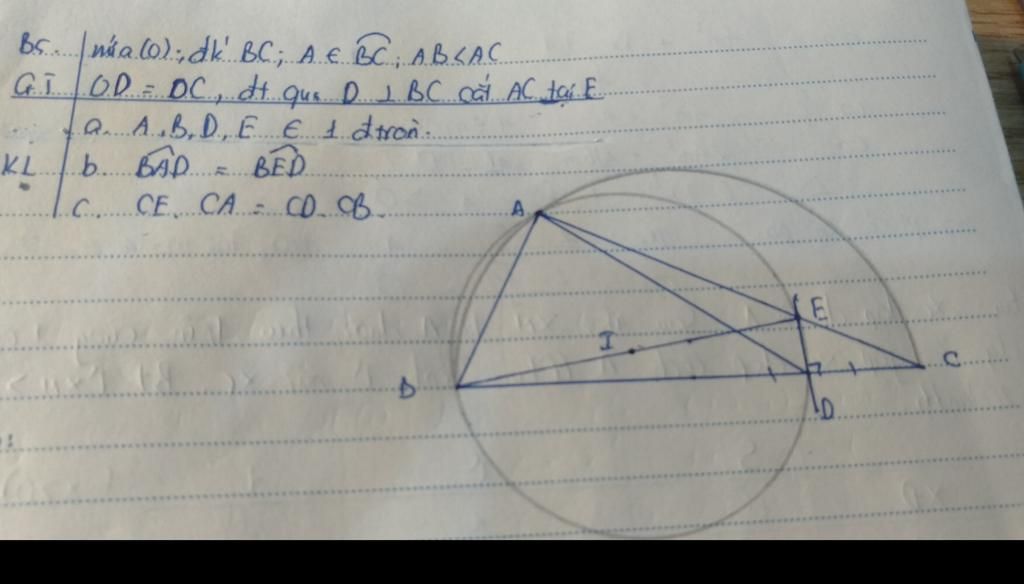 B5. nửa (O); đk' BC; A ∈ BC; AB < AC
GT OD = DC, đt qua D ⊥ BC cắt AC tại E
a. A, B, D, E ∈ 1 đtròn.
KL b. BAD = BED
c. CE. CA = CD. CB.
A
E
I
C
B
D